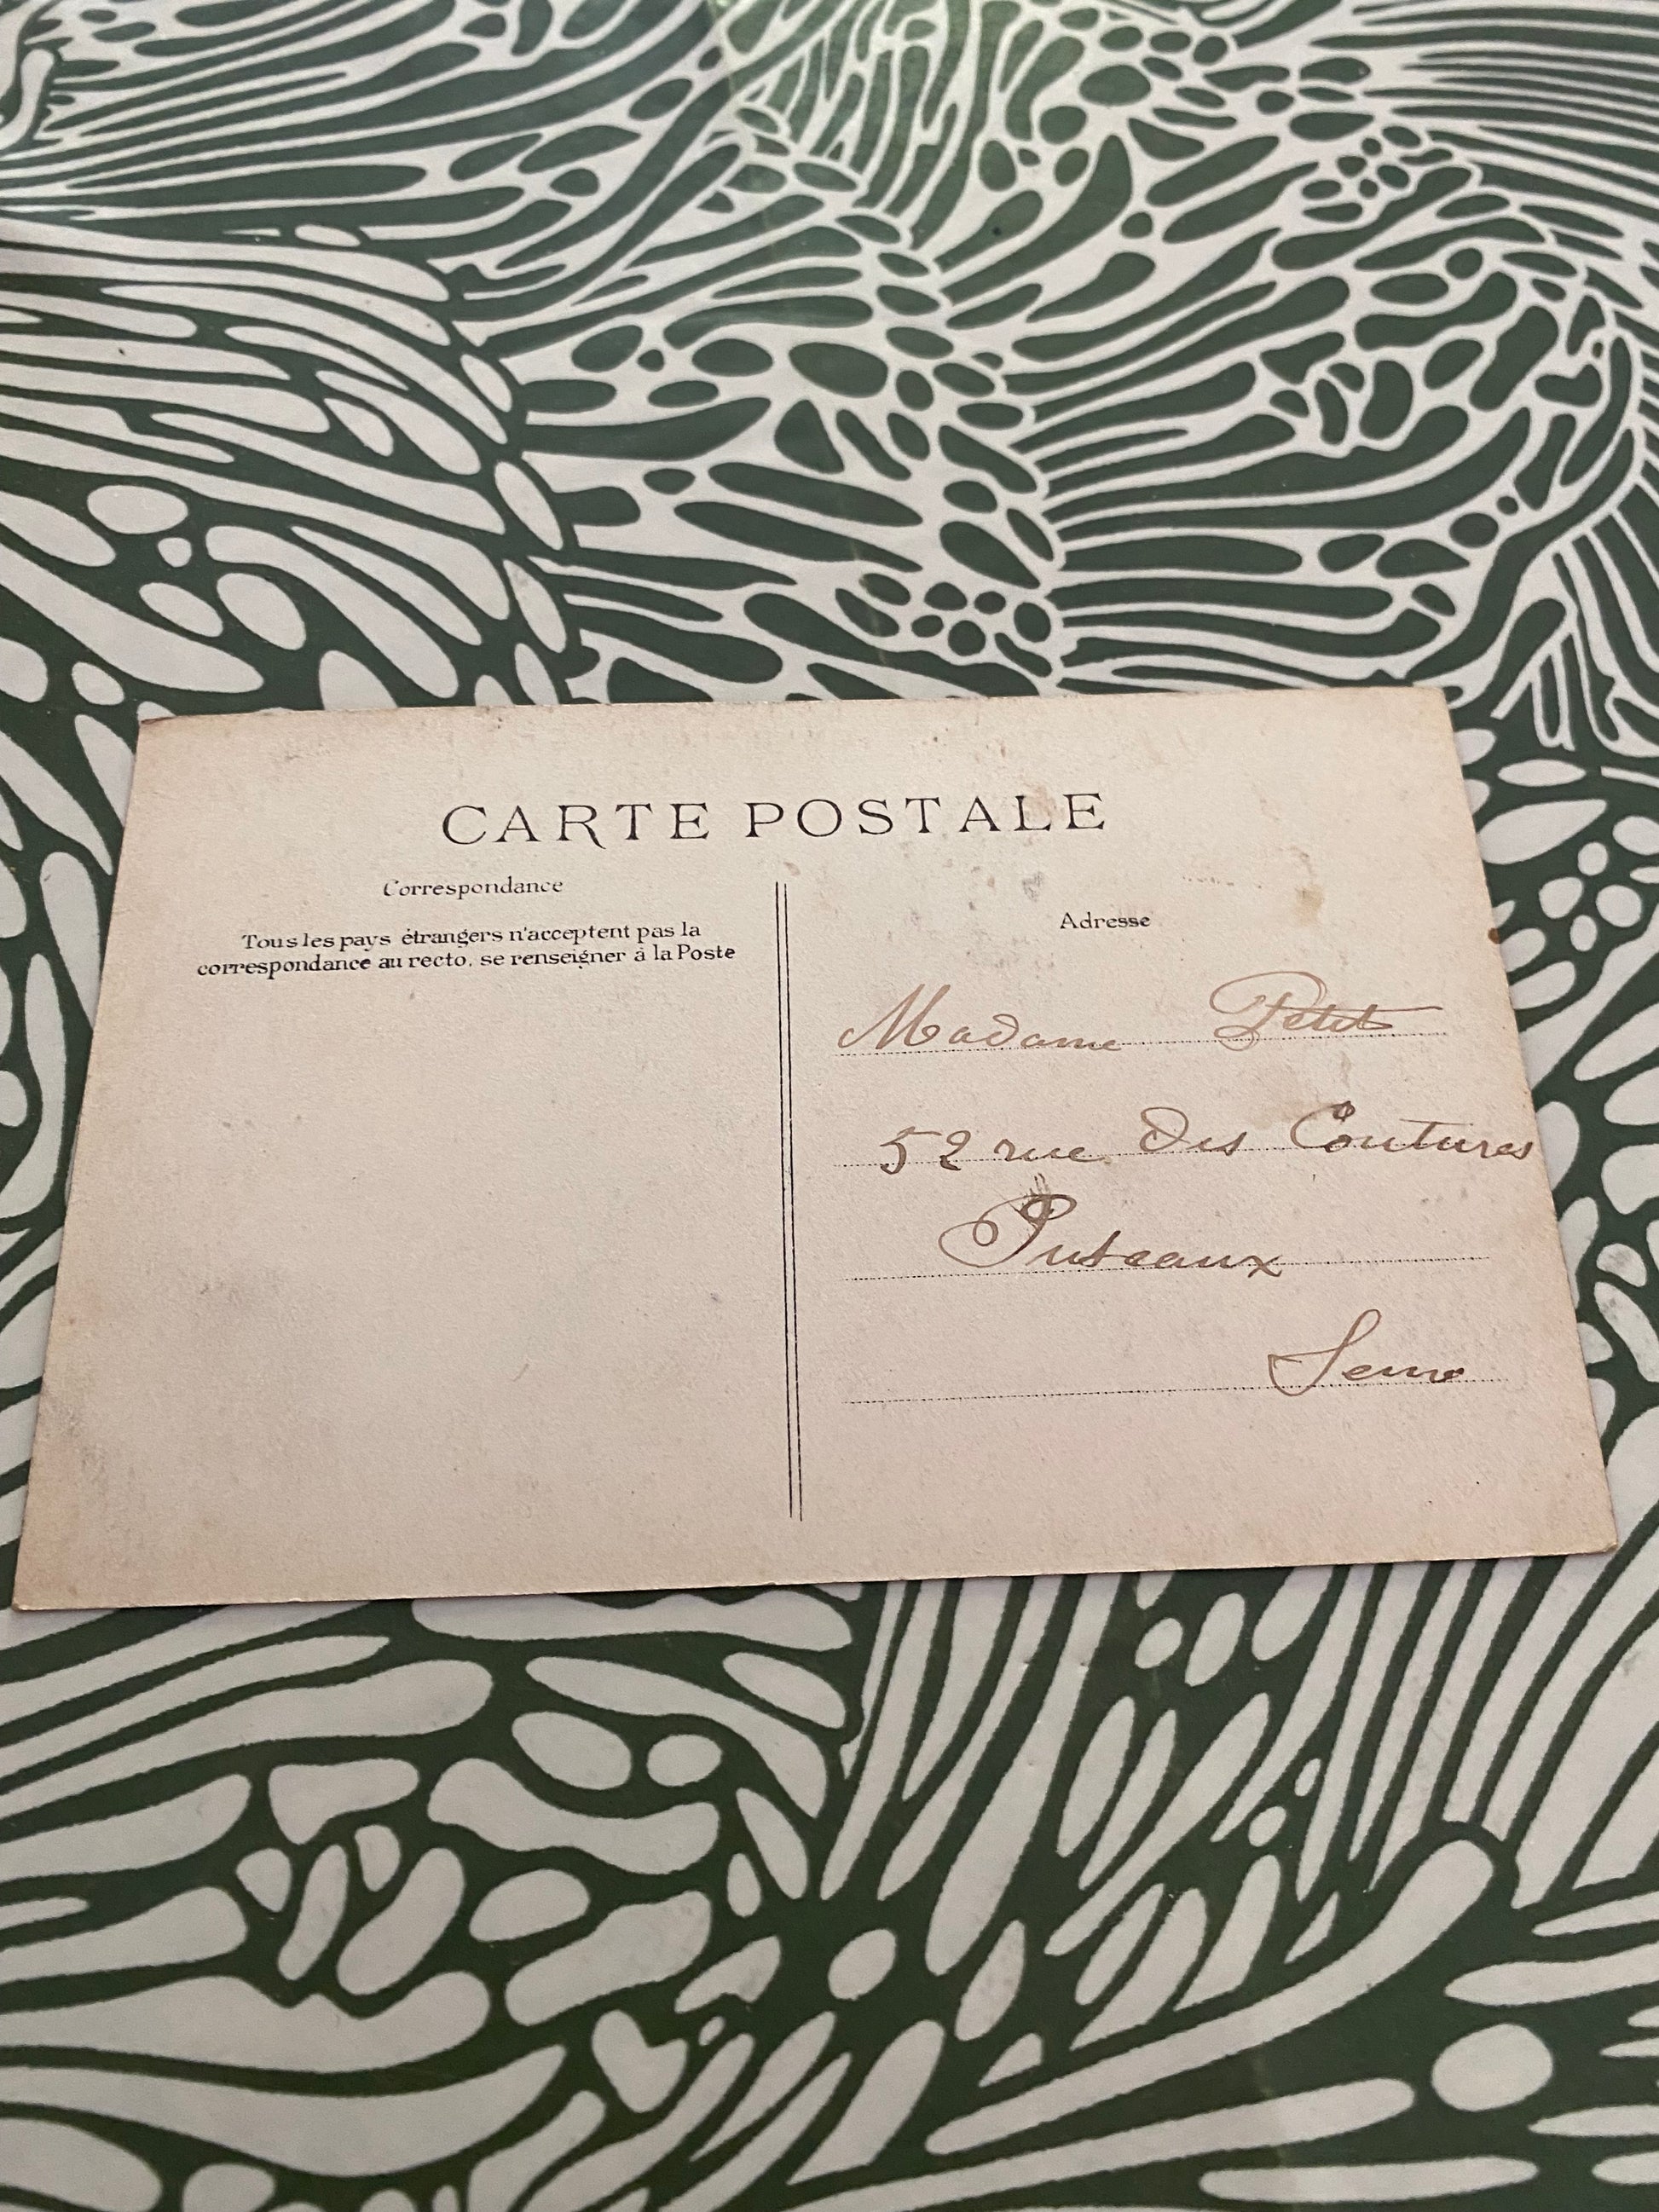 CARTE POSTALE
Correspondance
Tous les pays étrangers n'acceptent pas la
correspondance au recto, se renseigner à la Poste
Adresse
Madame Petit
52 rue Des Coutures
Puteaux
Seine